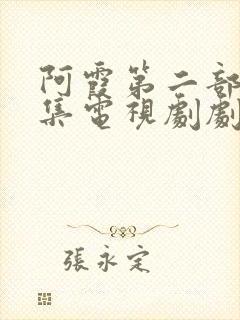 阿霞第二部
集電視劇劇
張永定